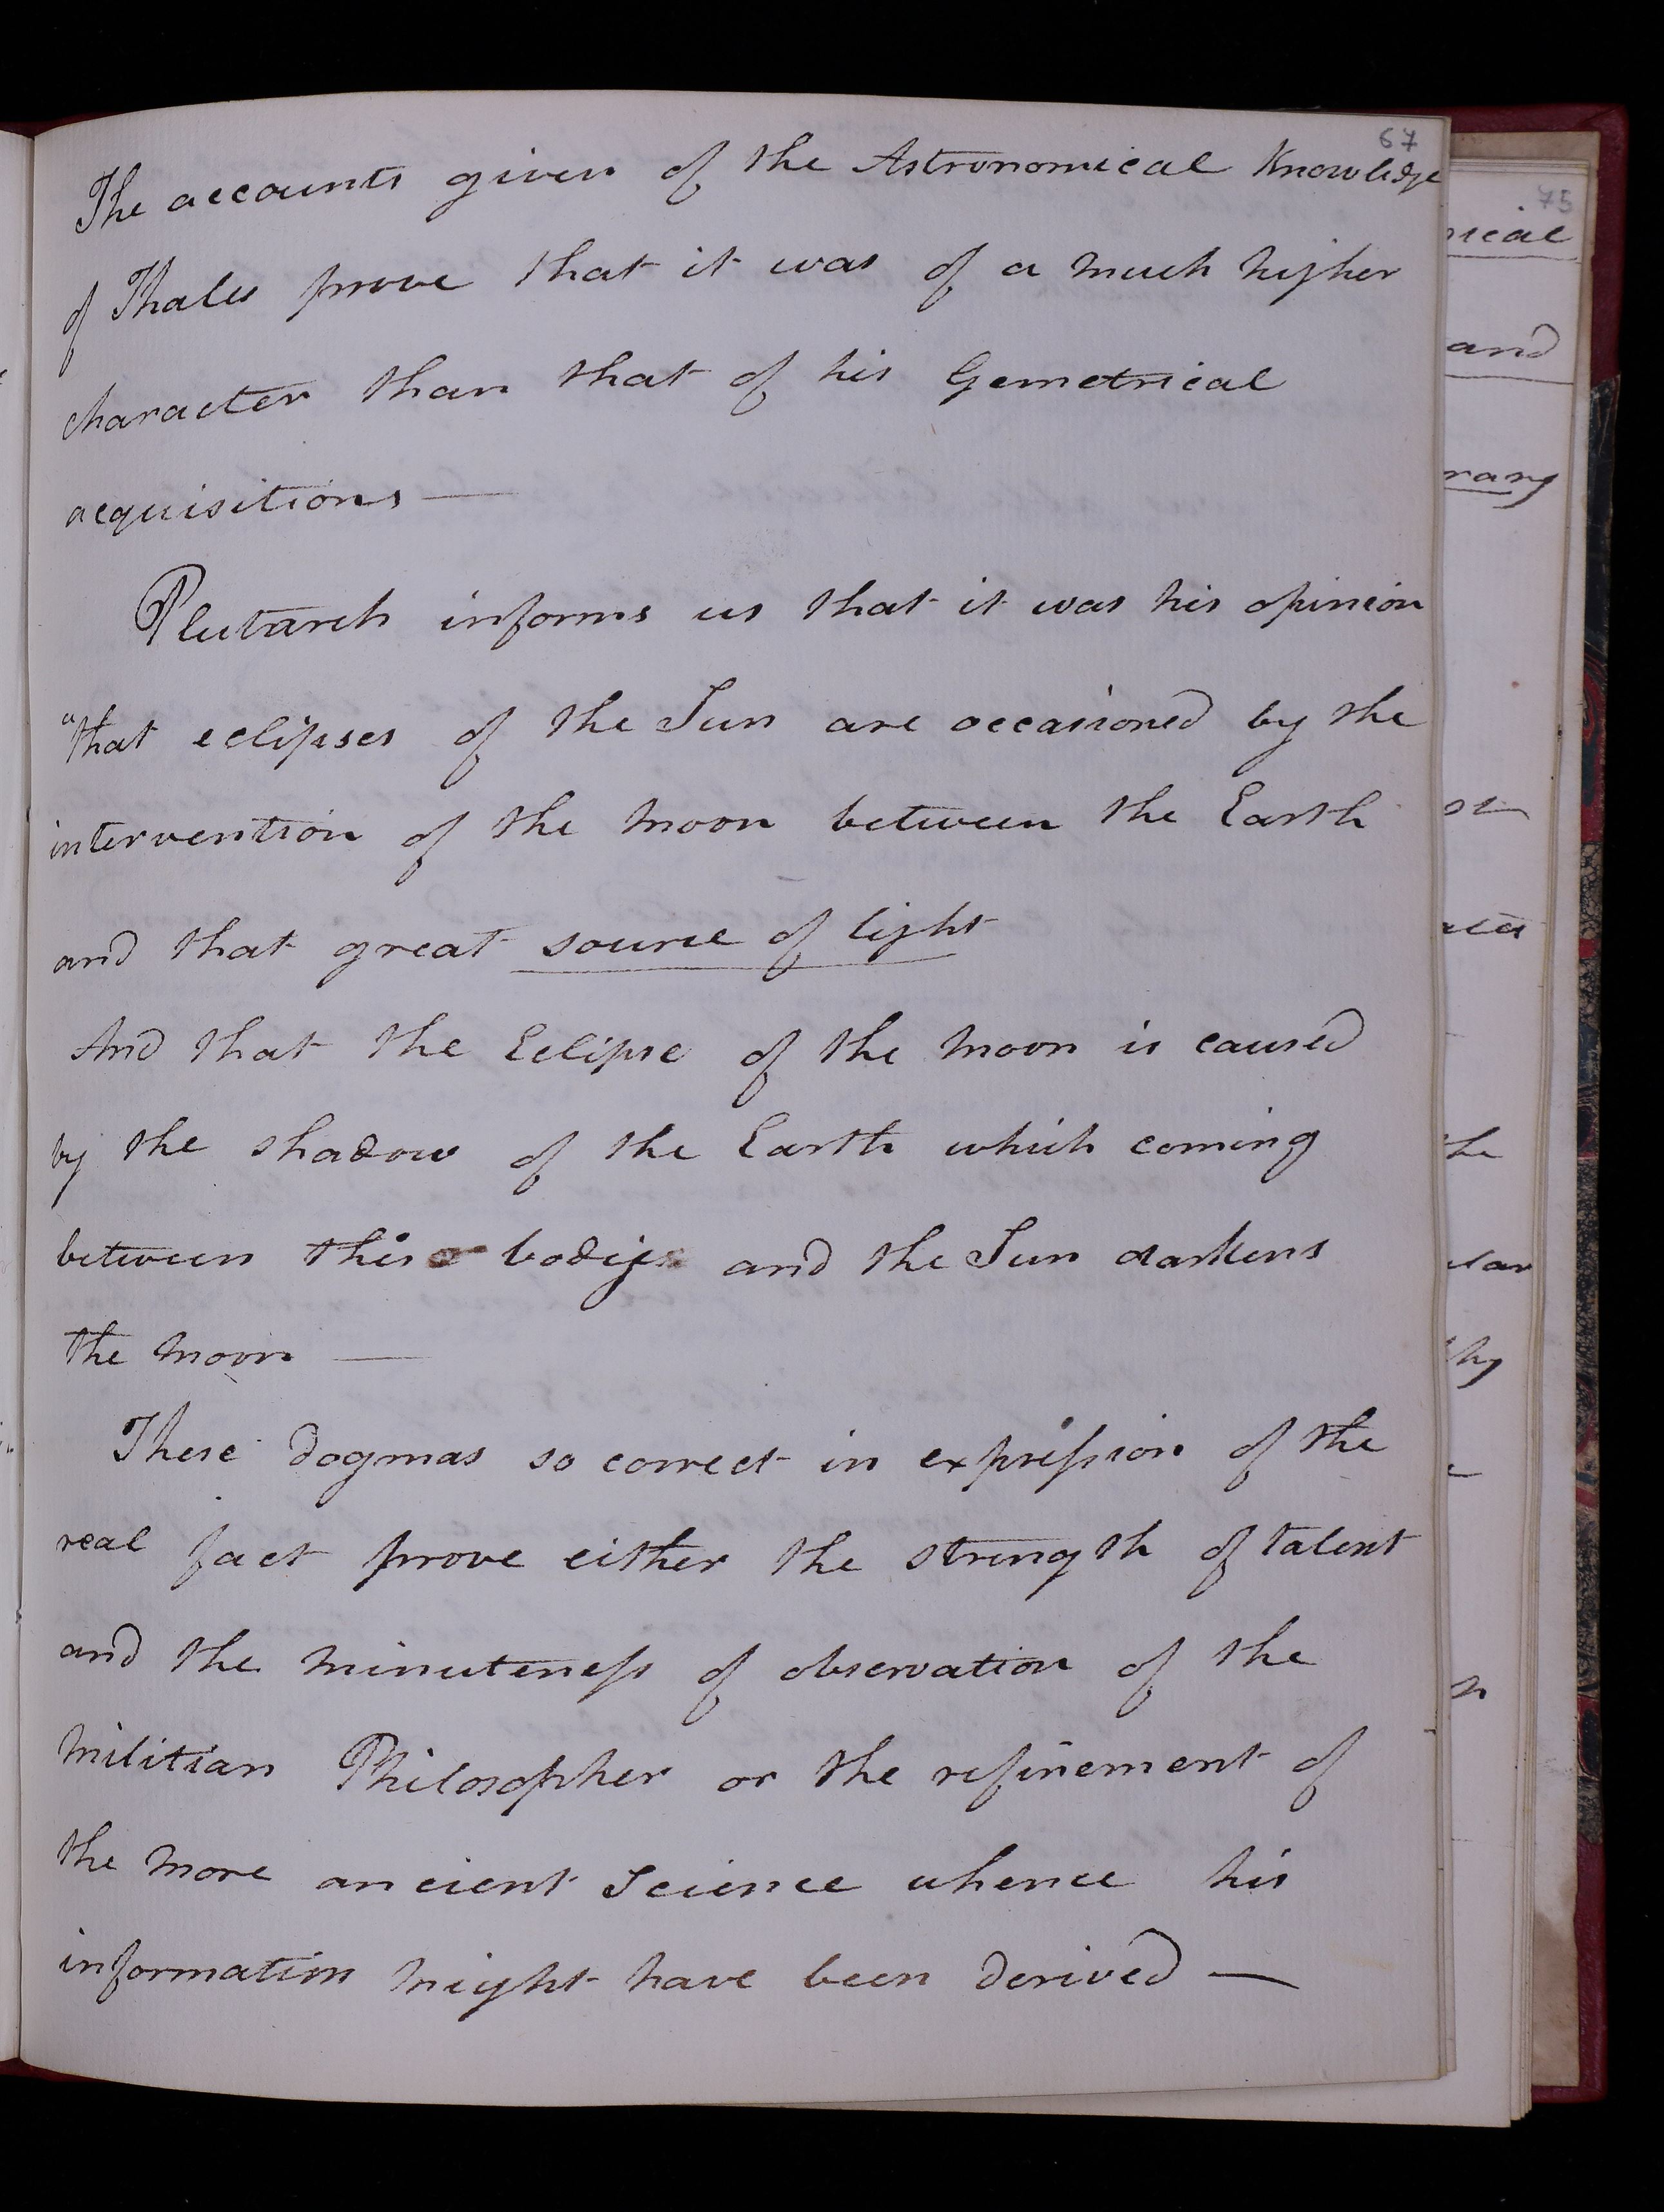 67
The accounts given of the Astronomical Knowledge
of Thales prove that it was of a much higher
character than that of his Gemetrical
acquisitions —
Plutarch informs us that it was his opinion
"that eclipses of the Sun are occasioned by the
intervention of the moon between the Earth
and that great source of light
And that the Eclipse of the moon is caused
by the shadow of the Earth which coming
between this body and the Sun darkens
the moon —
These dogmas so correct in expression of the
real fact prove either the strength of talent
and the minuteness of observation of the
Militian Philosopher or the refinement of
the more ancient Science whence his
information might have been derived —
75
and
the